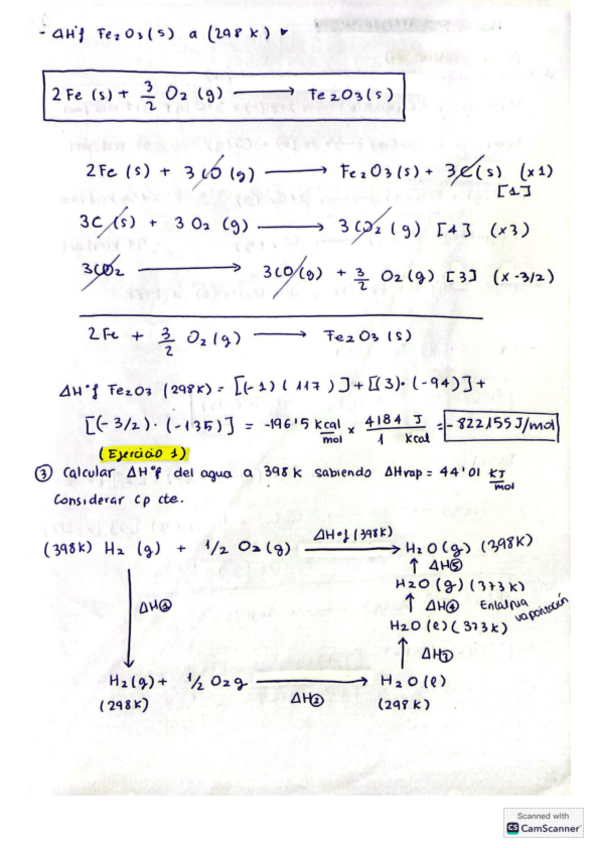 - ΔH°f Fe2O3(s) a (298 K)
2Fe (s) + 3/2 O2 (g) ⟶ Fe2O3(s)
2Fe (s) + 3CO (g) ⟶ Fe2O3(s) + 3C(s) (x1)
[1]
3C (s) + 3 O2 (g) ⟶ 3CO2 (g) [4] (x3)
3CO2 ⟶ 3CO(g) + 3/2 O2(g) [3] (x -3/2)
2Fe + 3/2 O2(g) ⟶ Fe2O3 (s)
ΔH°f Fe2O3 (298K) = [(-1)(117)]+[(3)·(-94)]+
[(-3/2)·(-135)] = -196'5 Kcal/mol x 4184 J/1 Kcal = -822155 J/mol
(Ejercicio 1)
③ Calcular ΔH°f del agua a 398K sabiendo ΔHvap = 44'01 KJ/mol
Considerar cp cte.
ΔH°f (398K)
(398K) H2 (g) + 1/2 O2(g) ⟶ H2O(g) (398K)
↑ ΔH⑤
H2O (g) (373K)
ΔH③ ↑ ΔH④ Entalpia vaporización
H2O (l) (373K)
↑ ΔH①
H2(g) + 1/2 O2g ⟶ H2O(l)
(298K) ΔH② (298K)
Scanned with
CS CamScanner